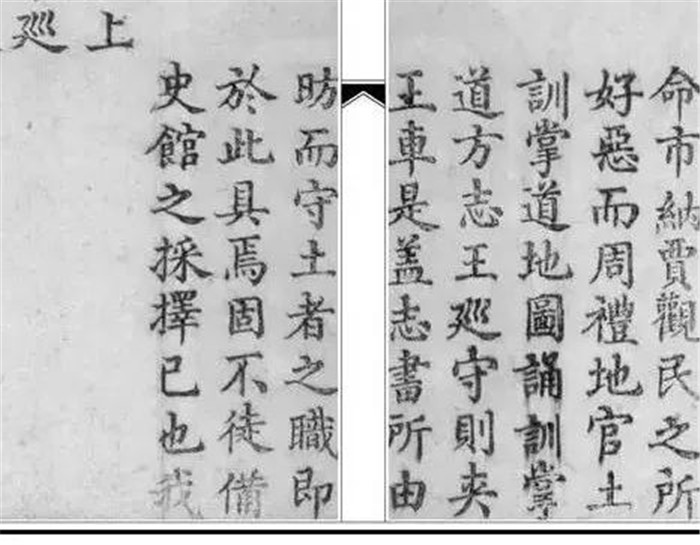 命市納賈觀民之所
好惡而周禮地官土
訓掌道地圖誦訓掌
道方志王廵守則夾
王車是盖志書所由
昉而守土者之職即
於此具焉固不徒備
史館之採擇已也我
上
廵